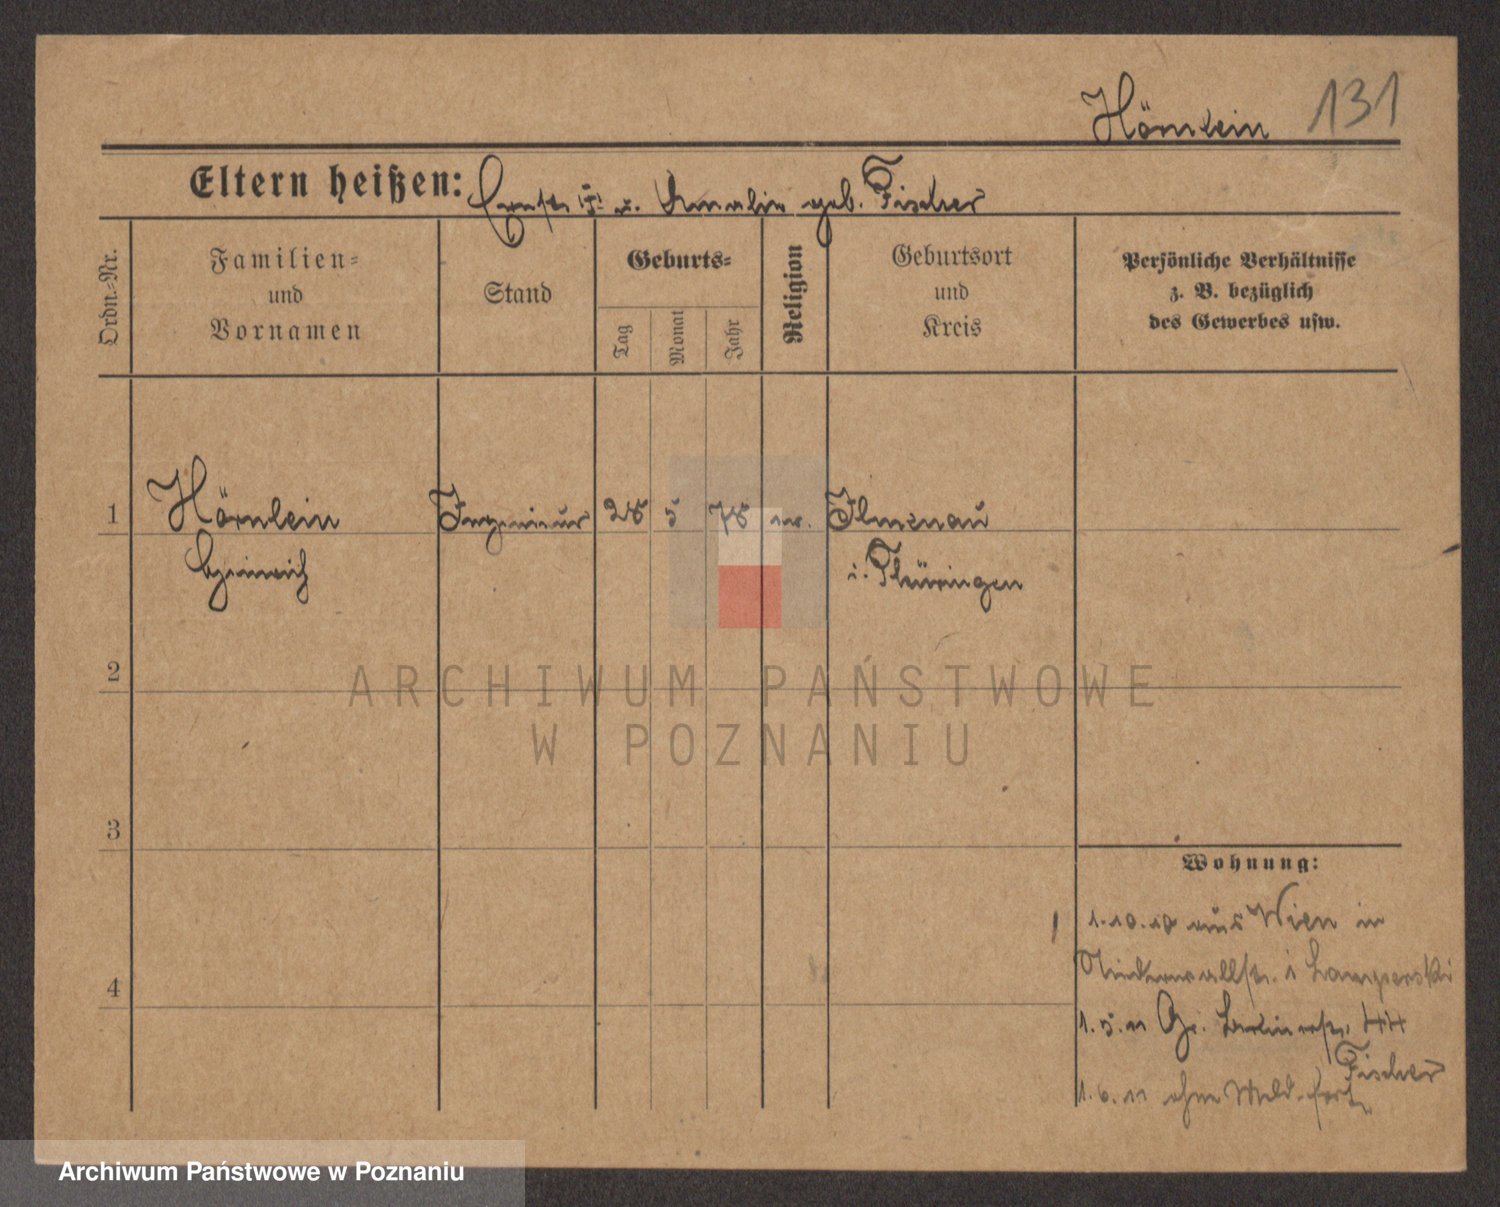 Hörnlein 131
Eltern heißen: Ernst u. Amalie geb. Fischer
Ordn.-Nr.
Familien-
und
Vornamen
Stand
Geburts-
Tag
Monat
Jahr
Religion
Geburtsort
und
Kreis
Persönliche Verhältnisse
z. B. bezüglich
des Gewerbes usw.
1 Hörnlein Ingenieur 28 5 78 ev. Ilmenau
Heinrich i. Thüringen
2
ARCHIWUM PAŃSTWOWE
W POZNANIU
3
Wohnung:
1.10.10 aus Wien in
Niederwallstr. 1
4
1.5.11 Gr. Berlinerstr. 44
Fischer
1.6.11 ohne Meld. fort
Archiwum Państwowe w Poznaniu